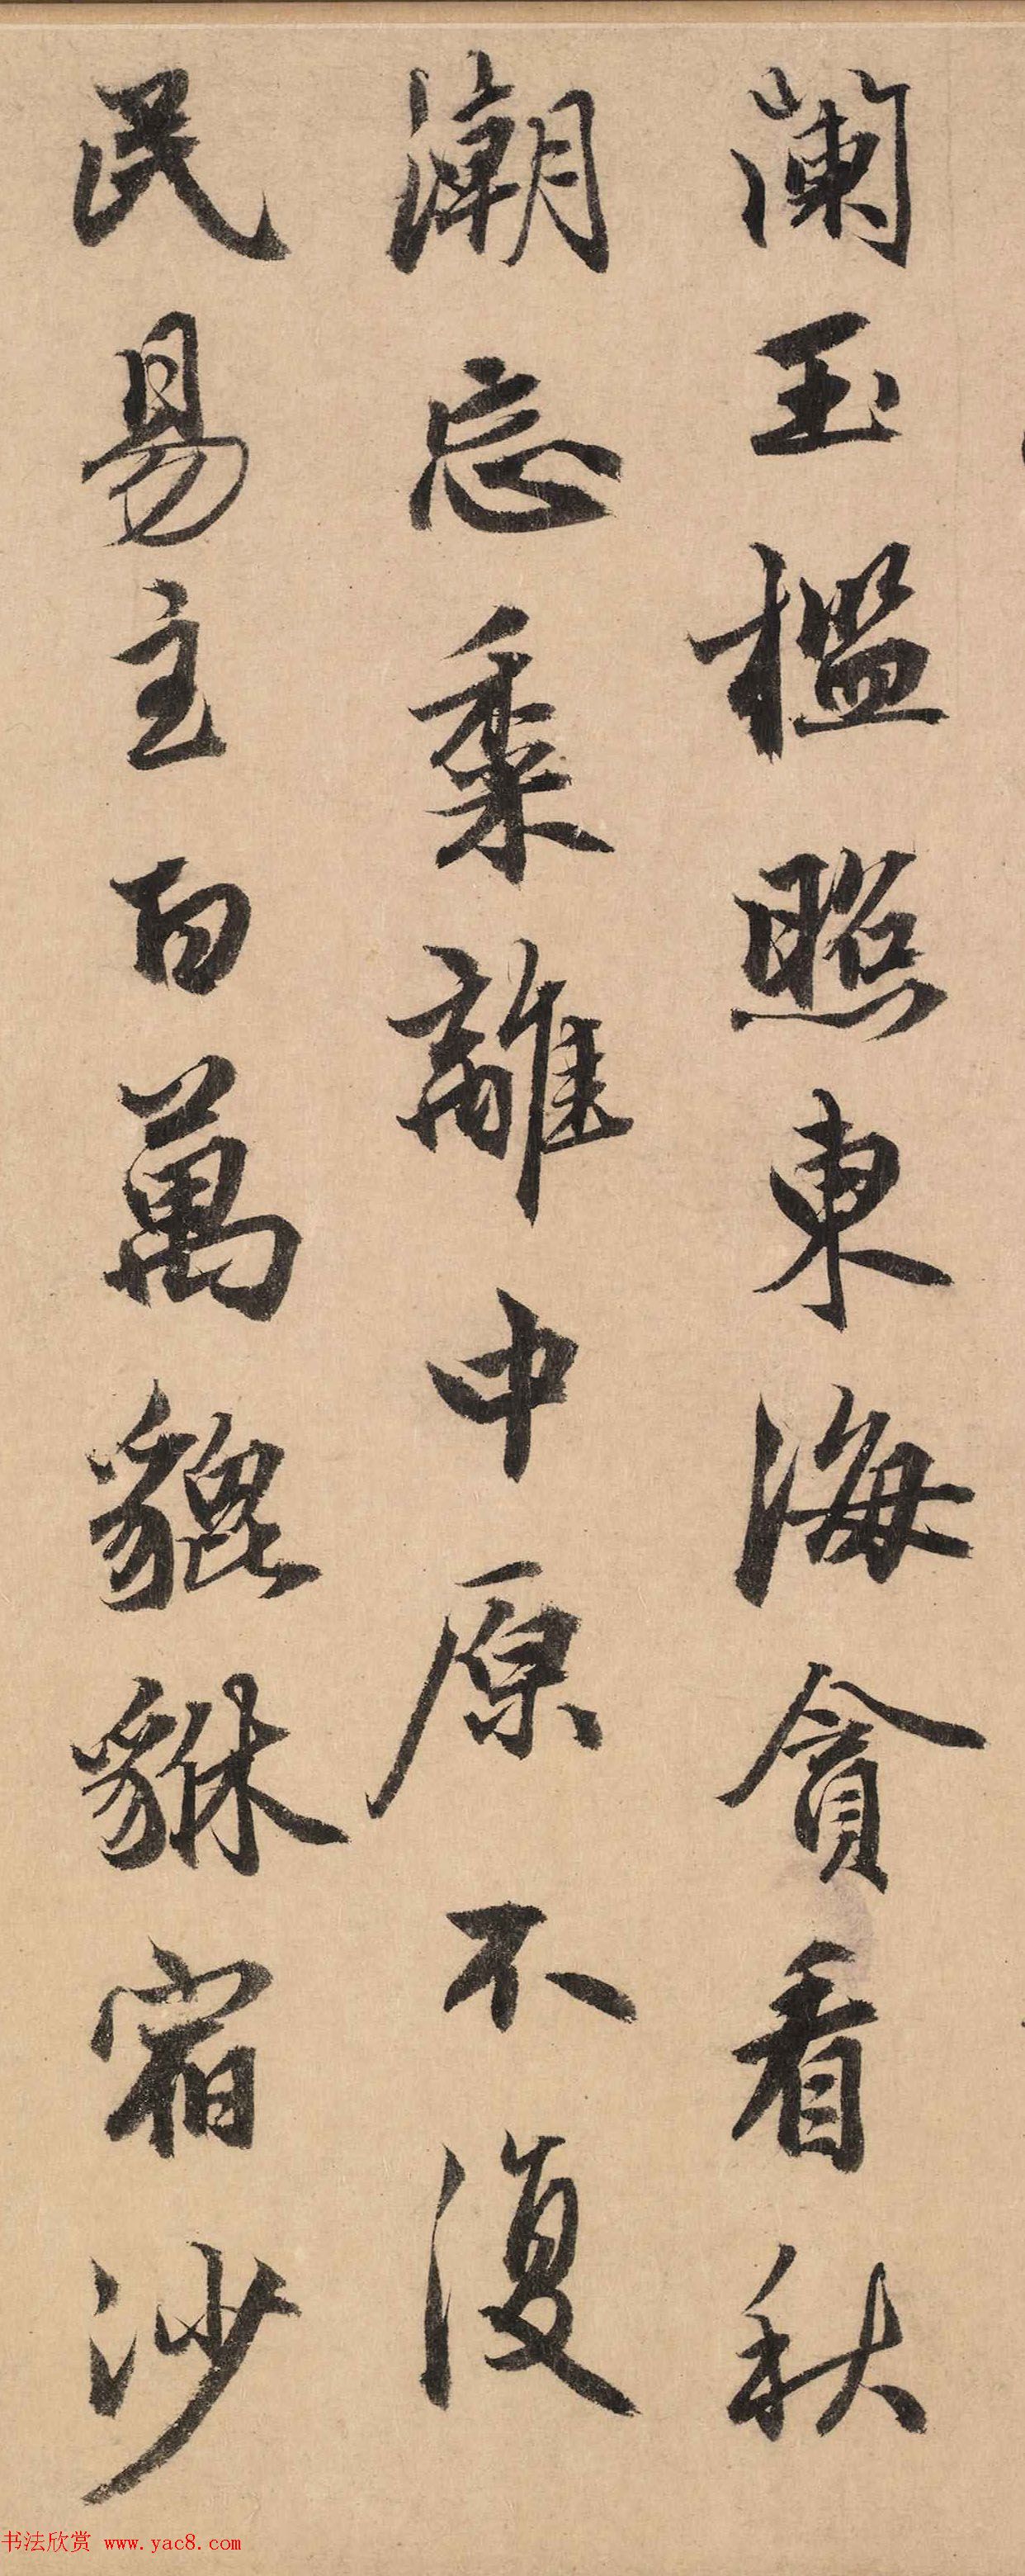 闌玉檻照東海貪看秋
潮忘黍離中原不復
民易主百萬貔貅宿沙
书法欣赏 www.yac8.com